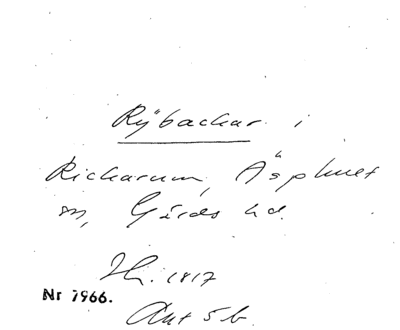 Rÿbackar i
Rickarum, Äsphult
sn, Gärds hd.
Hh. 1817
Nr 7966.
Akt 5b.